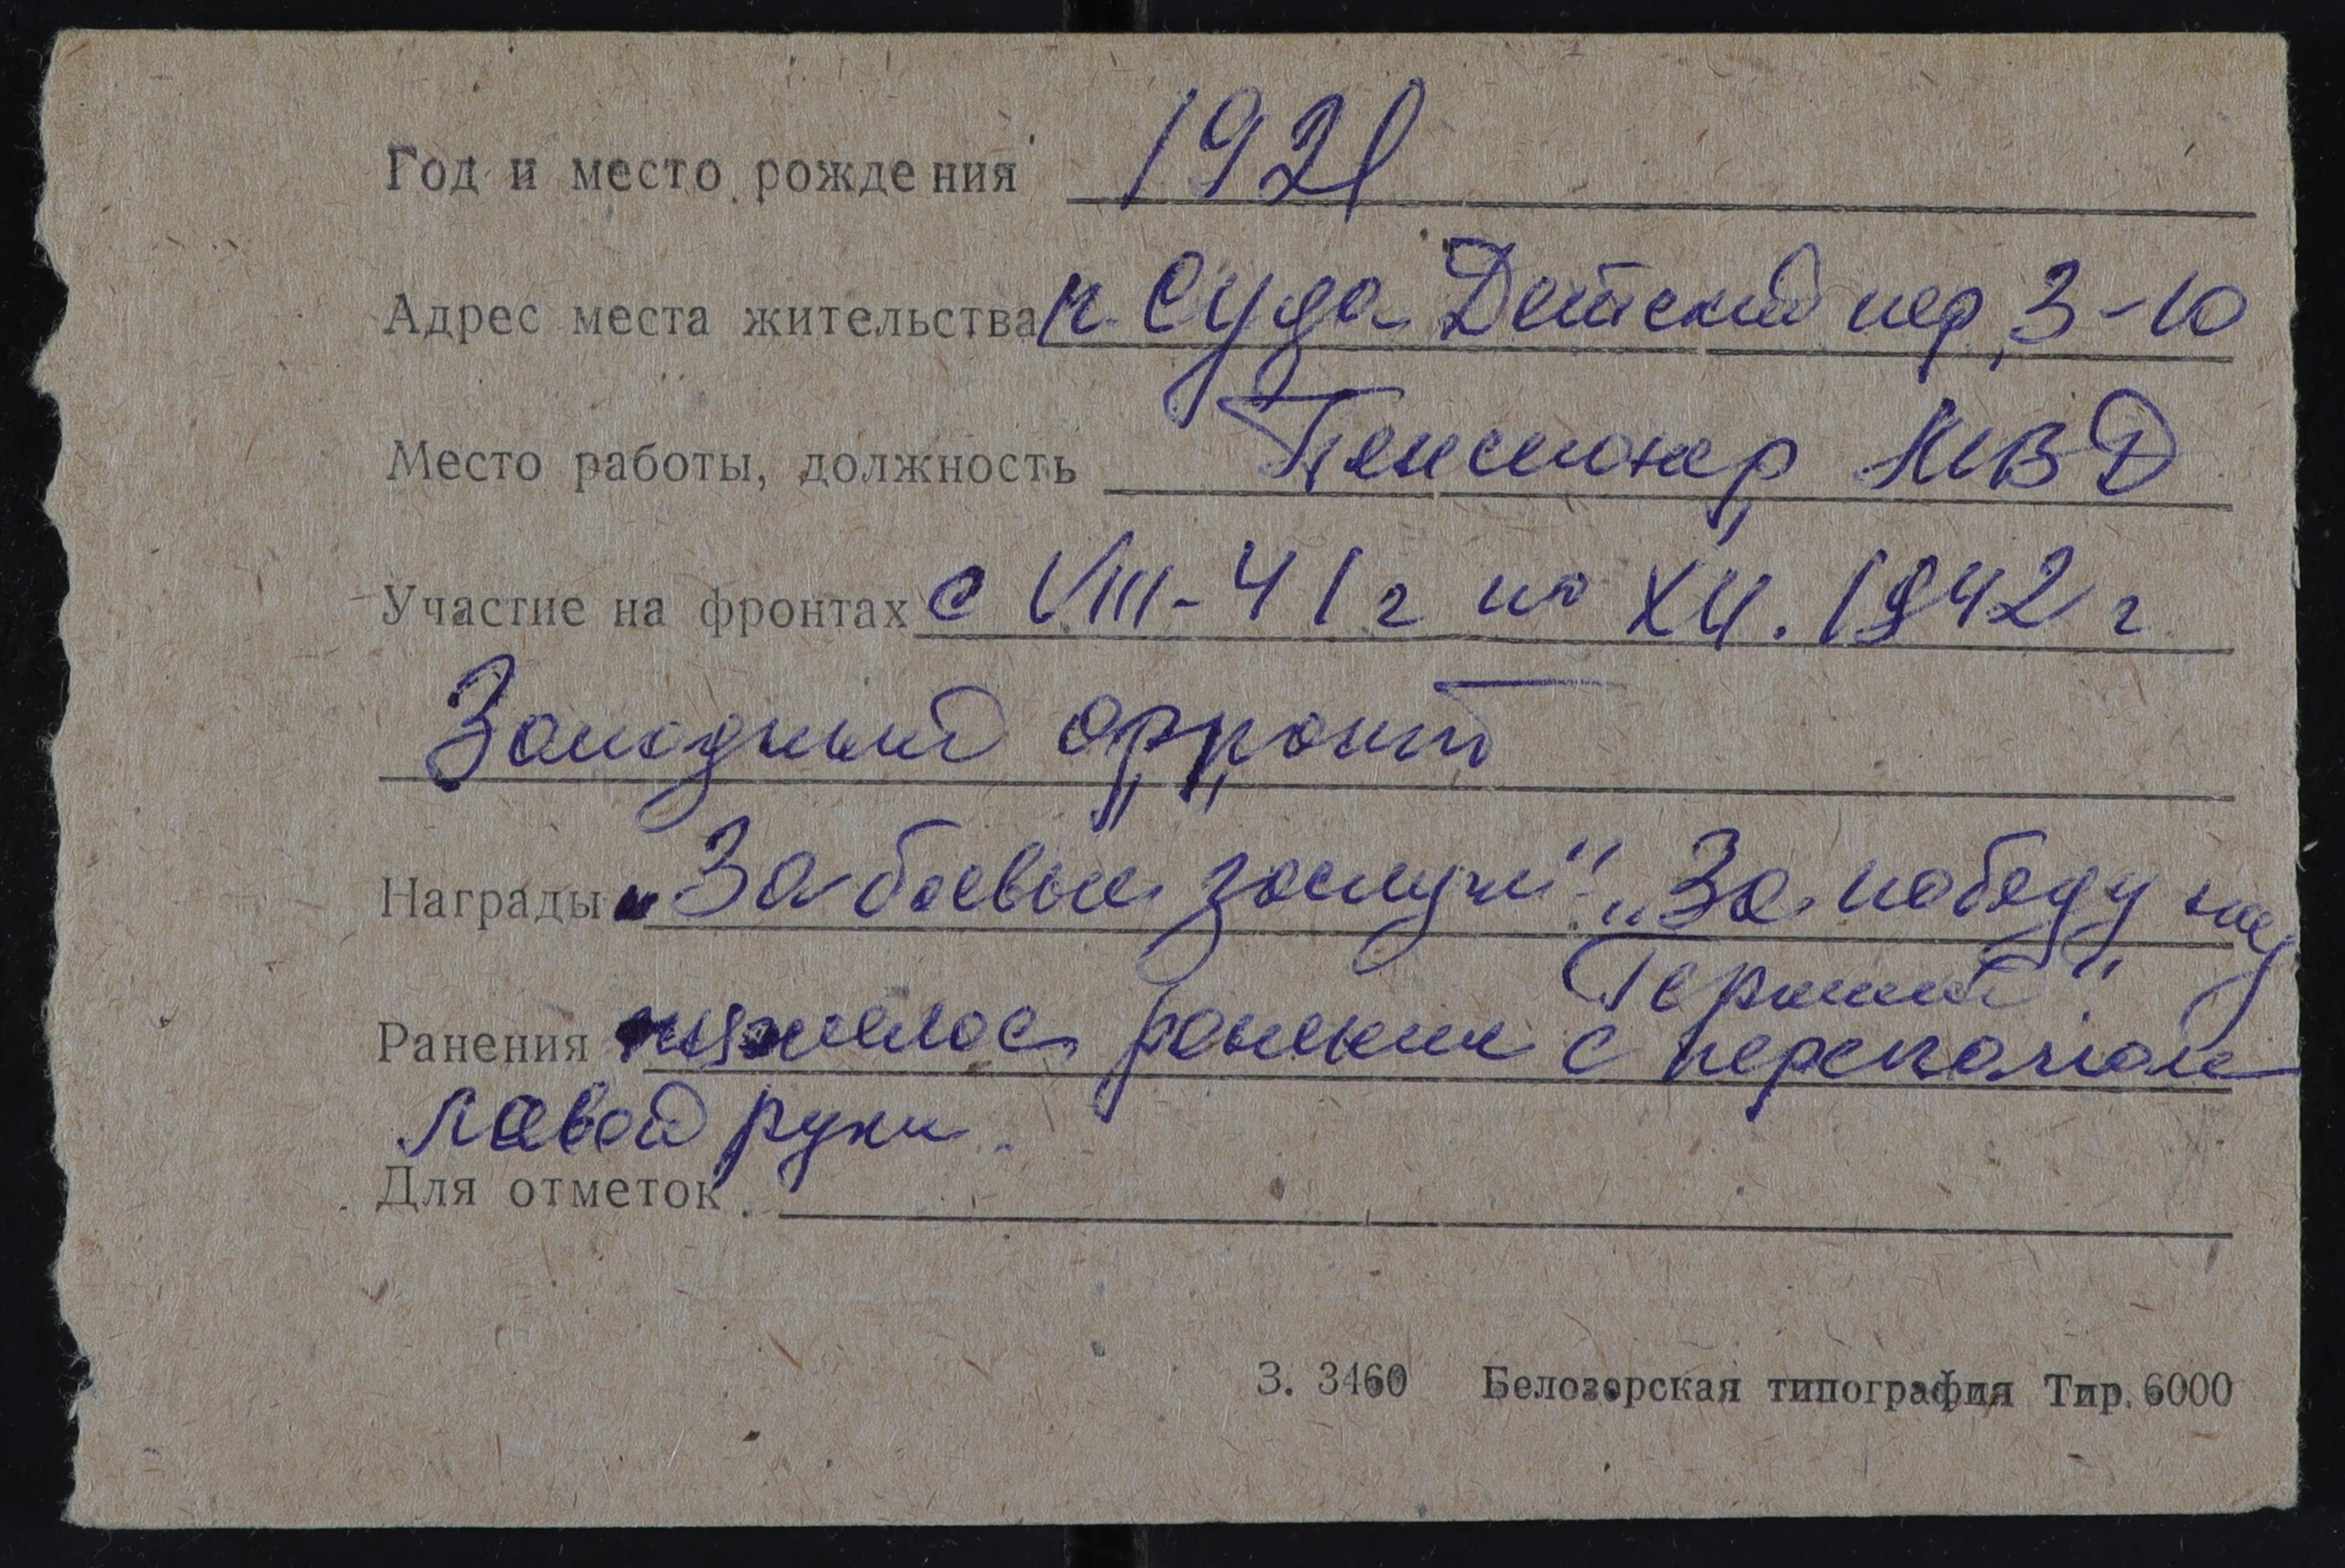 Год и место рождения 1921
Адрес места жительства п. Суда Детский пер, 3-10
Место работы, должность Пенсионер МВД
Участие на фронтах с VIII-41г по XII. 1942 г
Западный фронт
Награды „За боевые заслуги" „За победу над
Германией"
Ранения тяжелое ранение с переломом
левой руки.
Для отметок
З. 3460 Белозерская типография Тир. 6000